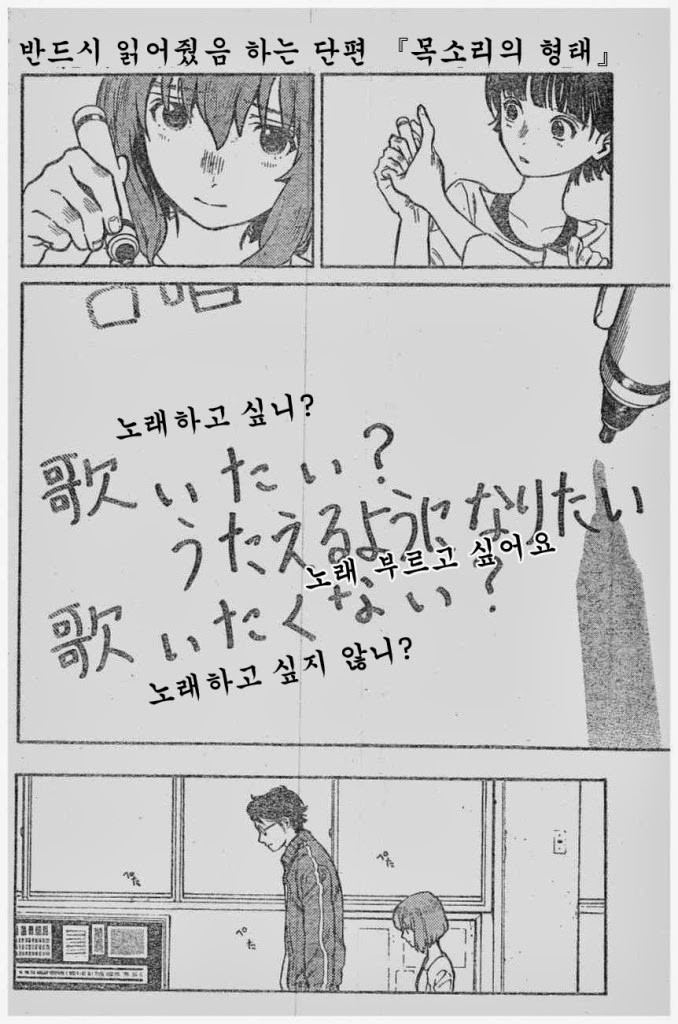 반드시 읽어줬음 하는 단편 『목소리의 형태』
노래하고 싶니?
歌いたい?
うたえるようになりたい
노래 부르고 싶어요
歌いたくない?
노래하고 싶지 않니?